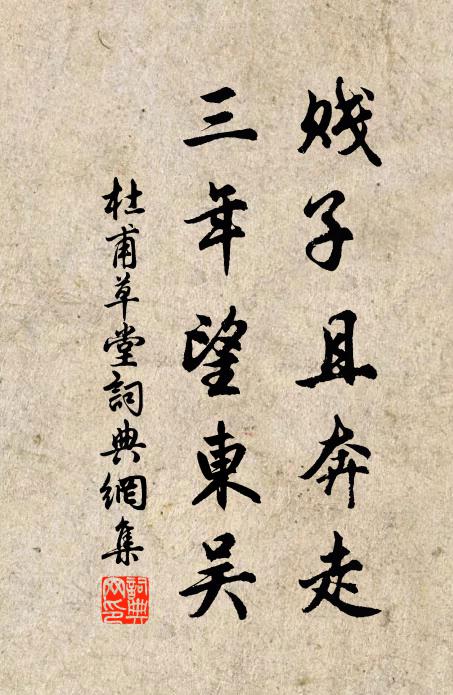 贱子且奔走
三年望東吴
杜甫草堂詞典網集
詞典网印